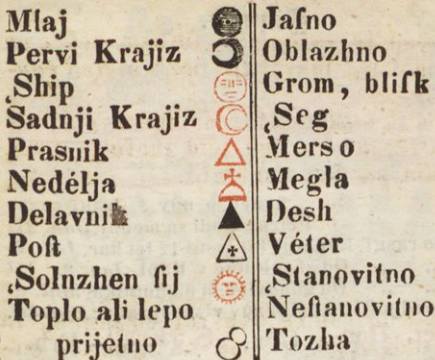 Mlaj
Pervi Krajiz
‚Ship
Sadnji Krajiz
Prasnik
Nedélja
Delavnik
Poſt
‚Solnzhen ſij
Toplo ali lepo
prijetno
Jaſno
Oblazhno
Grom, bliſk
‚Seg
Merso
Megla
Desh
Véter
‚Stanovitno
Neſtanovitno
Tozha